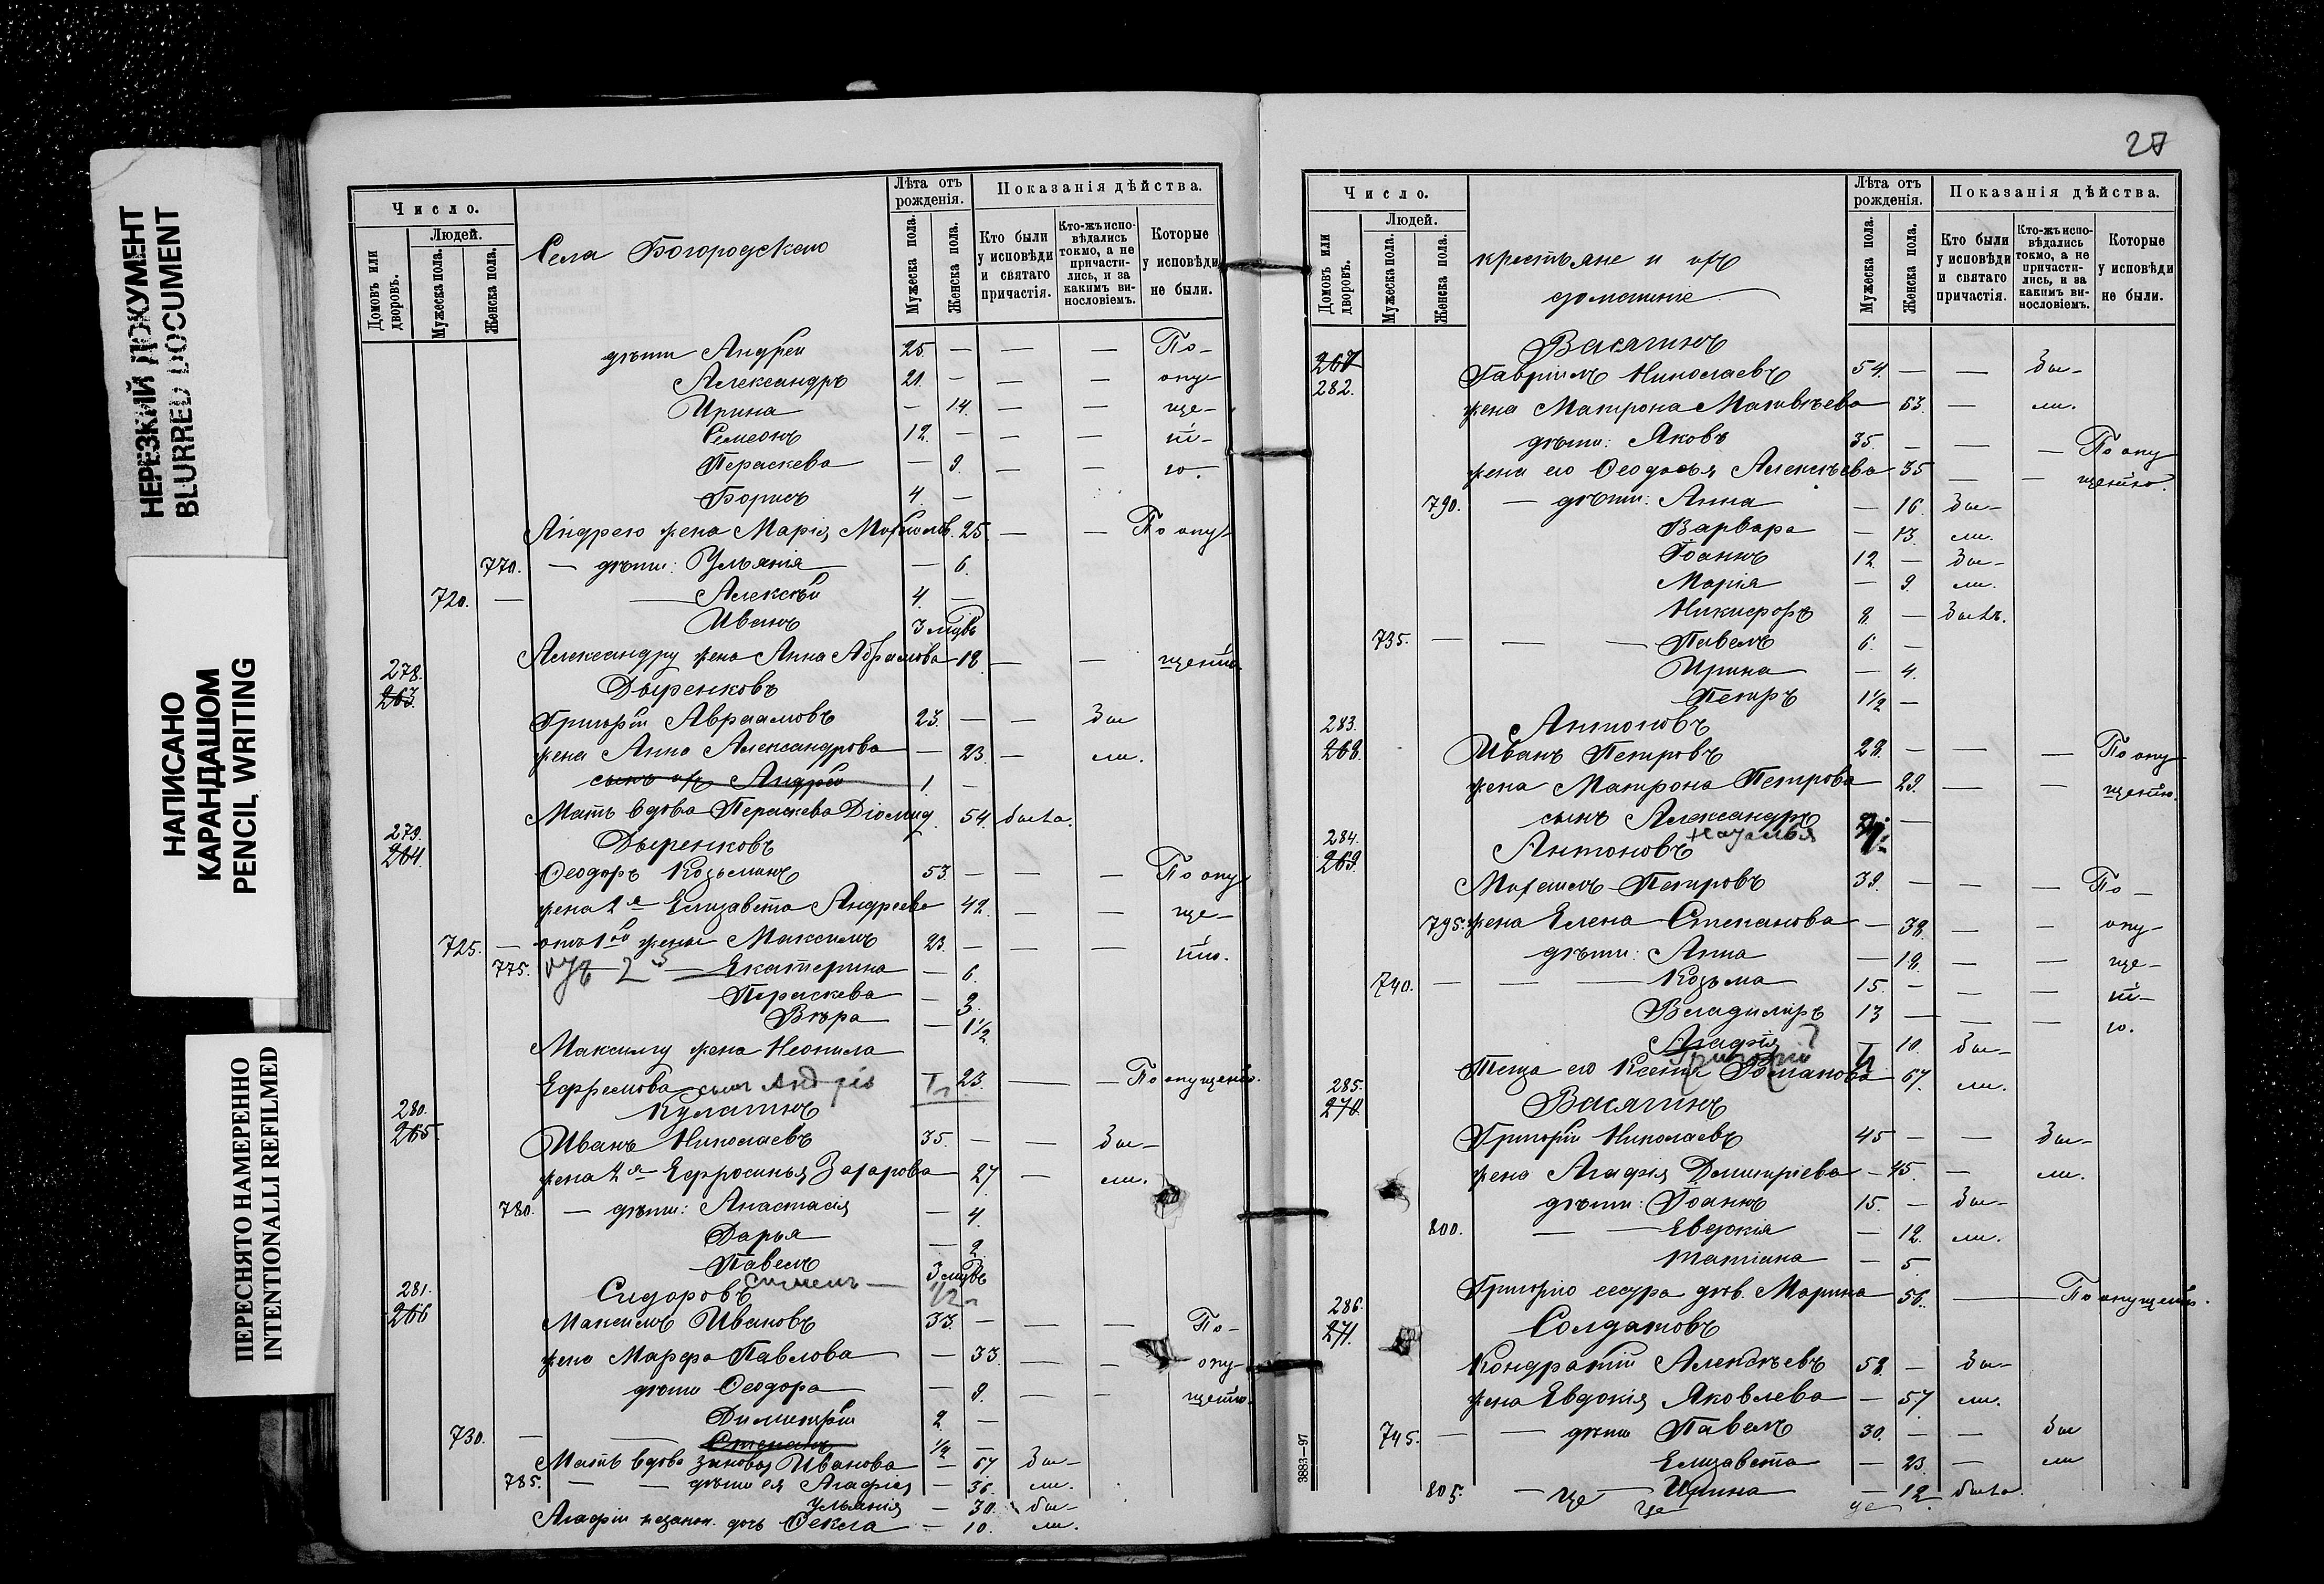 НЕРЕЗКИЙ ДОКУМЕНТ
BLURRED DOCUMENT
НАПИСАНО
КАРАНДАШОМ
PENCIL WRITING
ПЕРЕСНЯТО НАМЕРЕННО
INTENTIONALLI REFILMED
Число.
Людей.
Домовъ или дворовъ.
Мужеска пола.
Женска пола.
Села Богородскаго
Лѣта отъ рожденія.
Мужеска пола.
Женска пола.
Показанія дѣйства.
Кто были у исповѣди и святаго причастія.
Кто-жъ исповѣдались токмо, а не причастились, и за какимъ винословіемъ.
Которые у исповѣди не были.
дѣти Андрей 25. — — — По-
Александръ 21. — — — опу-
Ирина — 14. — — ще-
Симеонъ 12. — — — ні-
Параскева — 9. — — ю.
Борисъ 4. —
Андрею жена Марія 25. — — По опу-
770. — дѣти: Ульянія — 6.
720. — — Алексѣй 4. —
Иванъ 3 мцвъ
Александру жена Анна Абрамова 18 — — щенію
278. Дыренковъ
263. Григорій Авраамовъ 23. — — Бы
жена Анна Александрова — 23. — ли.
сынъ ихъ Андрей 1. —
Мать вдова Параскева Діомид. 54. была.
279. Дыренковъ
264. Ѳеодоръ Козьминъ 53. — — — По опу-
жена 2я Елизавета Андреева 42. — — ще-
725. — отъ 1ой жены Максимъ 23. — — — нію.
775. отъ 2й — Екатерина — 6.
Параскева — 3.
Вѣра — 1½
Максиму жена Неонила
Ефремова сынъ Андрей 23. — — По опущенію.
280. Кулагинъ
265. Иванъ Николаевъ 35. — — Бы-
жена 2я Ефросинья Захарова 27. — ли.
780. — дѣти: Анастасія — 4.
Дарья — 2
Павелъ 3 мцвъ
281. Сидоровъ
266 Максимъ Ивановъ 33. — — — По-
жена Марфа Павлова — 33. — — опу-
дѣти Ѳеодора — 9. — — щенію.
Димитрій 2. —
730. — — Степанъ ½ —
Мать вдова Зиновья Иванова — 67 Бы-
785. — — дѣти ея Агафія — 36. ли.
Ульянія — 30. бы-
Агафіи незакон. дочь Ѳекла — 10. ли.
27
Число.
Людей.
Домовъ или дворовъ.
Мужеска пола.
Женска пола.
крестьяне и ихъ
домашніе
Лѣта отъ рожденія.
Мужеска пола.
Женска пола.
Показанія дѣйства.
Кто были у исповѣди и святаго причастія.
Кто-жъ исповѣдались токмо, а не причастились, и за какимъ винословіемъ.
Которые у исповѣди не были.
267 Васягинъ
282. Гавріилъ Николаевъ 54. — — Бы-
жена Матрона Матвѣева 53. — ли.
дѣти: Яковъ 35. — — — По опу-
жена его Ѳеодосья Алексѣева 35 — — щенію.
790. — дѣти: Анна — 16. Бы-
Варвара — 13. ли.
Іоаннъ 12. — Бы-
Марія — 9. ли.
Никифоръ 8. — Былъ.
735. — — — Павелъ 6. —
Ирина — 4.
Петръ 1½ —
283. Антоновъ
268. Иванъ Петровъ 28. — — — По опу-
жена Матрона Петрова 29. — — щенію.
сынъ Александръ —
Наталья
284. Антоновъ
269. Михаилъ Петровъ 39. — — — По —
795. жена Елена Степанова — 38. — — опу-
дѣти: Анна — 18. — — ще-
740. — — — Козьма 15. — — — ні-
Владиміръ 13 — — — ю.
Агафія — 10. Бы-
Григорій
Теща его Ксенія Романова 67. ли.
285. Васягинъ
270. Григорій Николаевъ 45 — — Бы-
жена Агафія Дмитріева — 45. — ли.
дѣти: Іоаннъ 15. — Бы-
800. — — Евдокія — 12. ли.
Татіана — 5
Григорію сестра дѣв. Марина 56. — — По опущенію.
286. Солдатовъ
271. Кондратій Алексѣевъ 58. — Бы-
жена Евдокія Яковлева — 57. ли.
745. — — дѣти Павелъ 30. — — бы
Елизавета — 23. — ли
805. — Ирина — 12. была.
3883—97